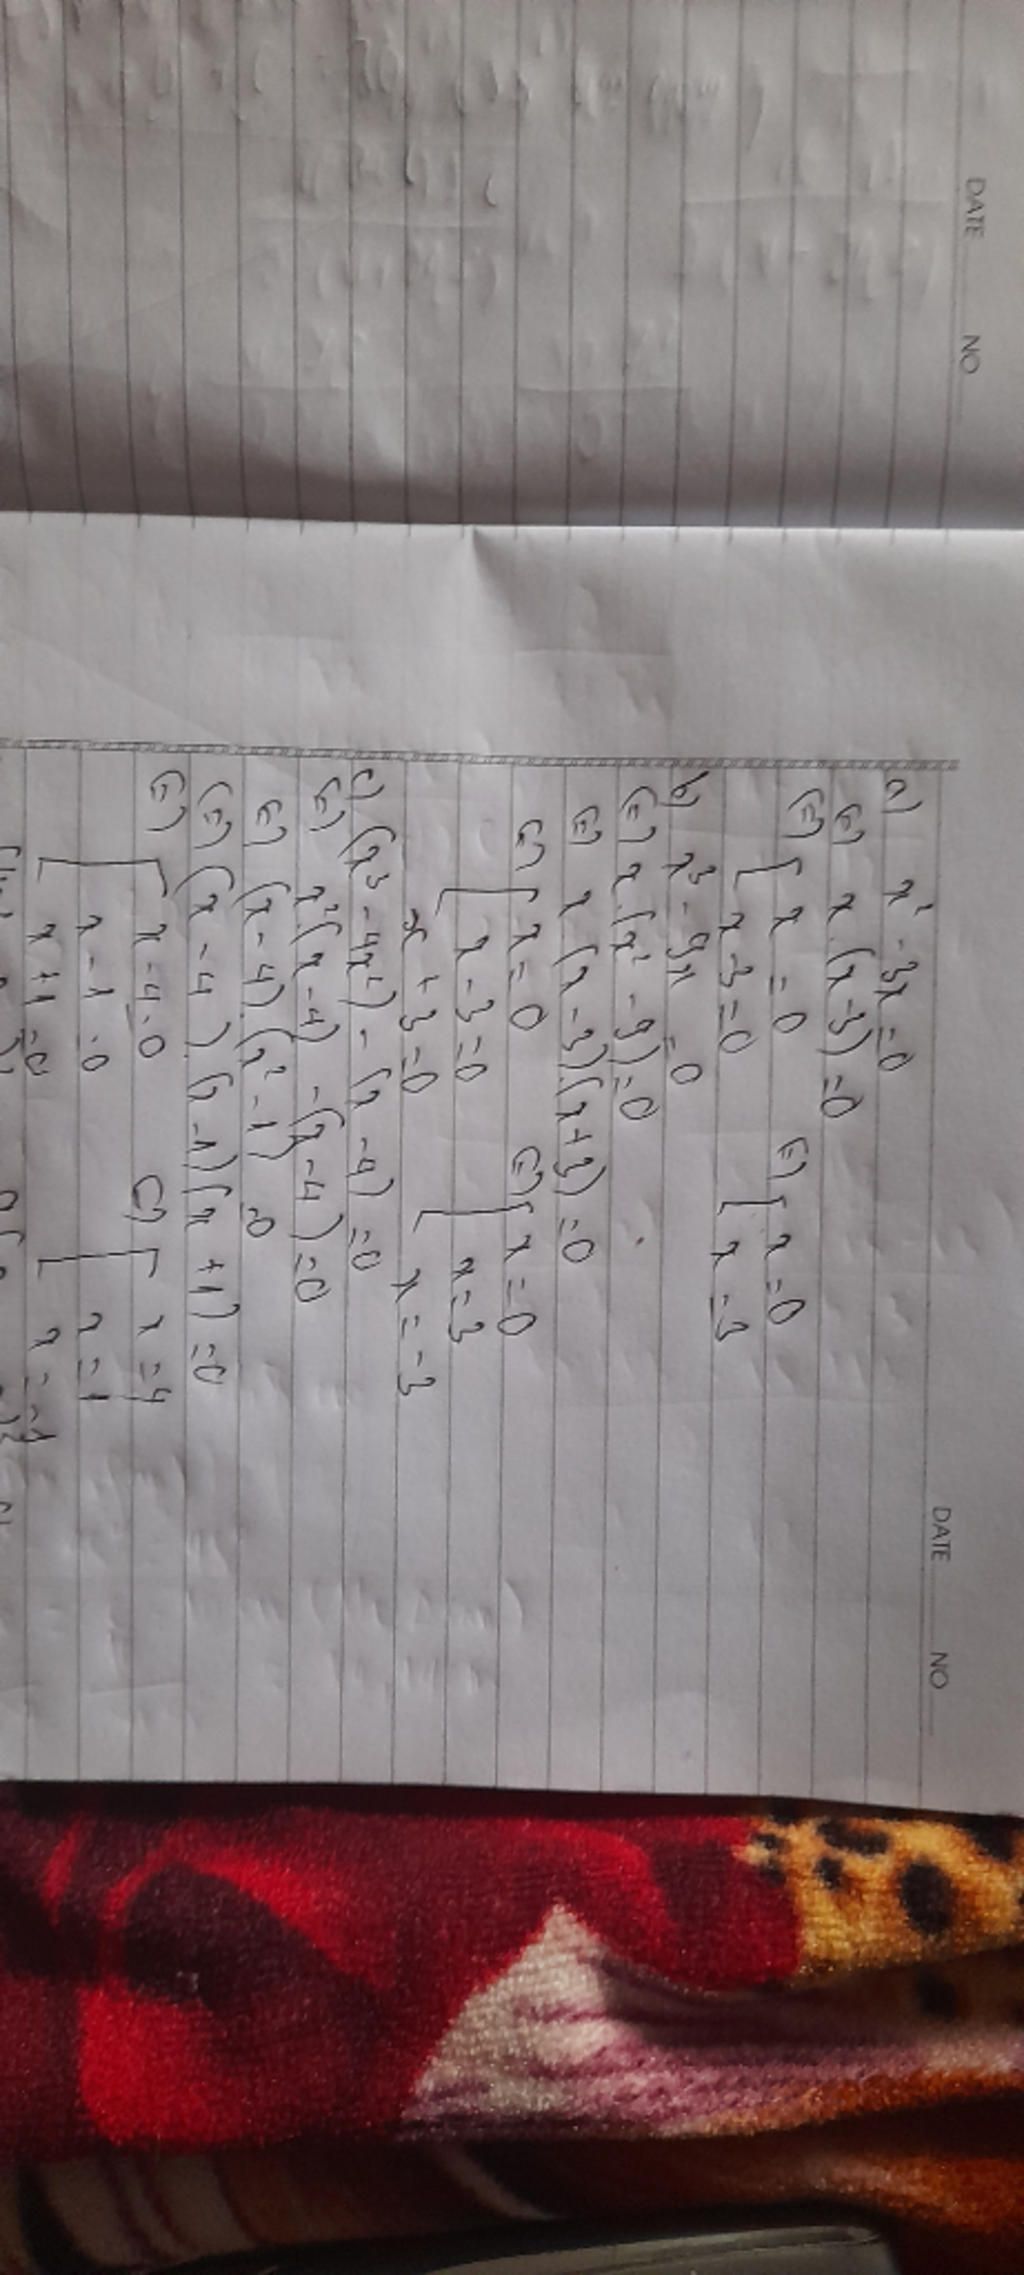 DATE NO
DATE NO
a) x² - 3x = 0
(=) x.(x-3) = 0
(=) [ x = 0 (=) [ x = 0
x - 3 = 0 x = 3
b) x³ - 9x = 0
(=) x.(x² - 9) = 0
(=) x.(x-3).(x+3) = 0
(=) [ x = 0 (=) [ x = 0
x - 3 = 0 x = 3
x + 3 = 0 x = -3
c) (x³ - 4x²) - (x - 4) = 0
(=) x²(x-4) - (x-4) = 0
(=) (x-4)(x²-1) = 0
(=) (x-4)(x-1)(x+1) = 0
(=) [ x - 4 = 0 (=) [ x = 4
x - 1 = 0 x = 1
x + 1 = 0 x = -1